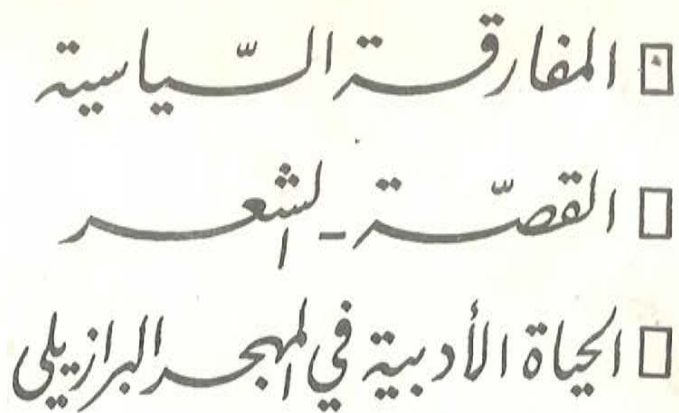 □ المفارقة السّياسية
□ القصّة - الشعر
□ الحياة الأدبية في المهجر البرازيلي